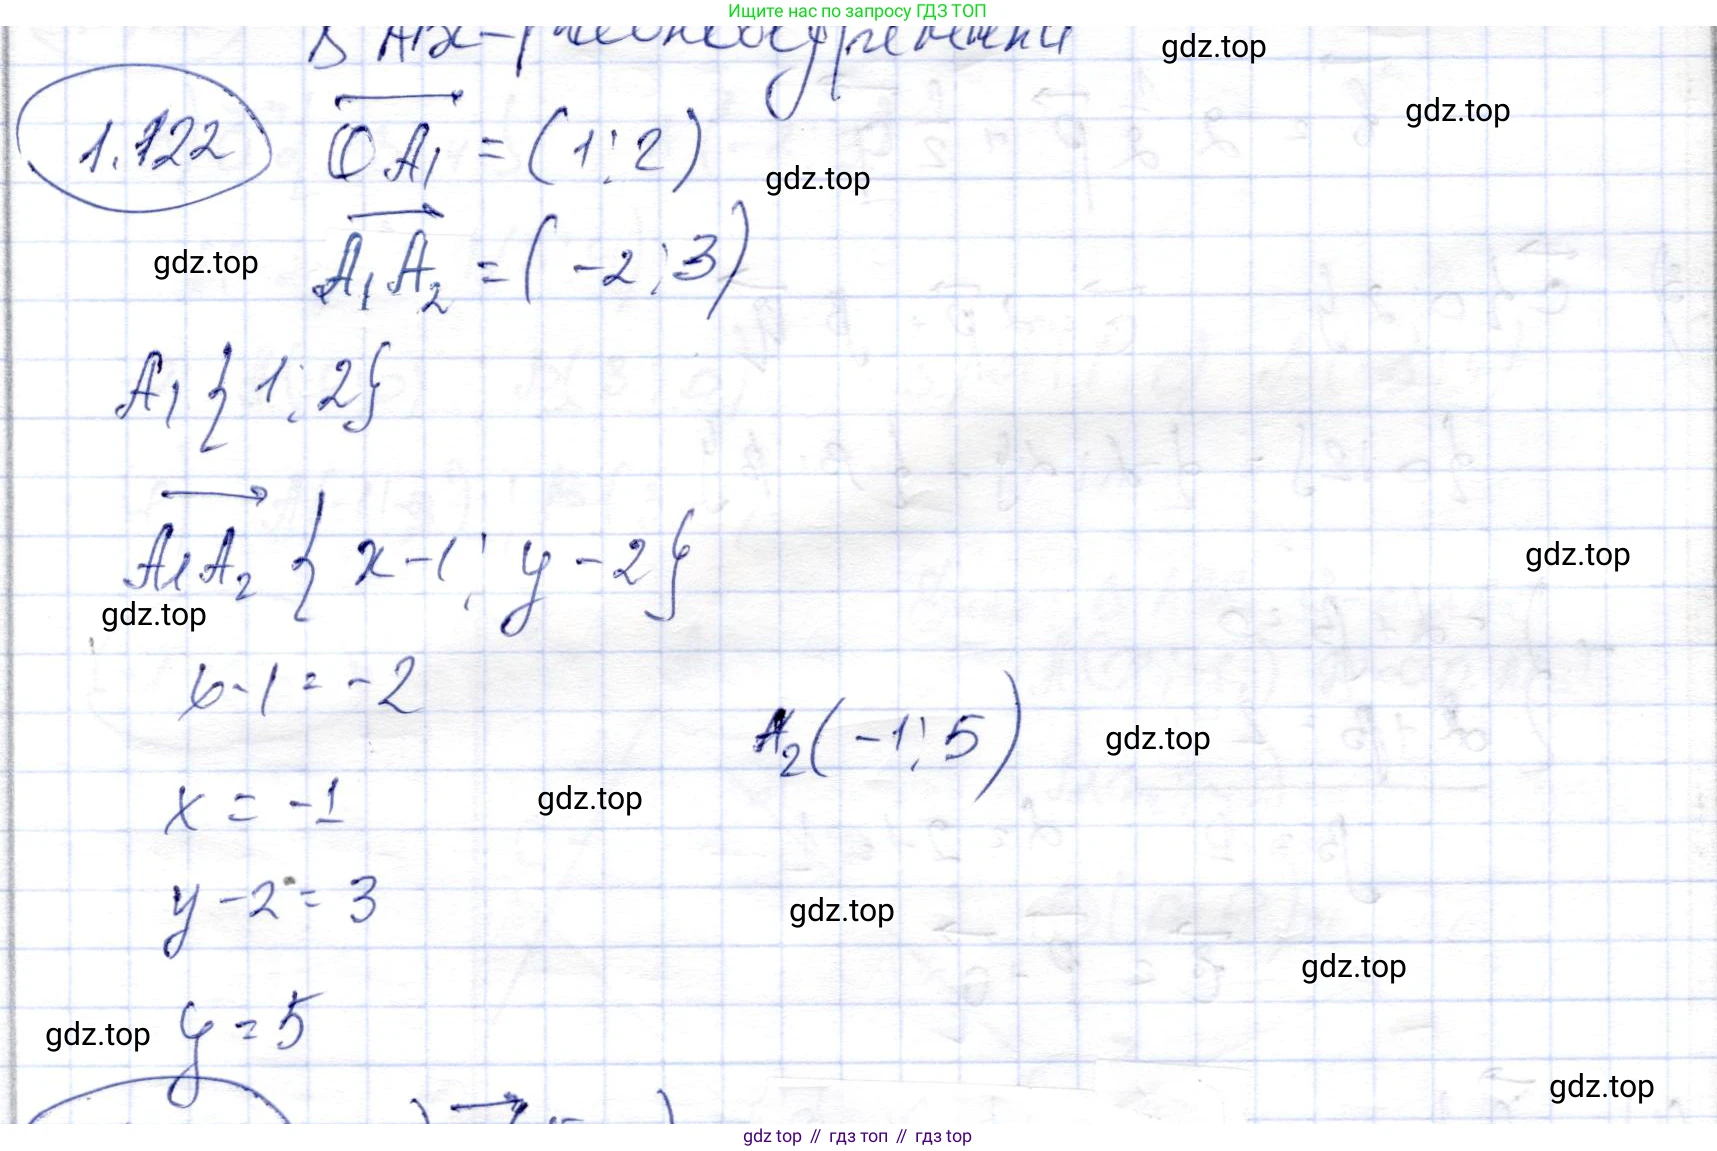 Ищите нас по запросу ГДЗ ТОП
gdz.top
gdz.top
1.122 OA₁ = (1; 2)
gdz.top
A₁A₂ = (-2; 3)
gdz.top
A₁ { 1; 2}
A₁A₂ { x-1; y-2}
gdz.top
gdz.top
-1 = -2
A₂(-1; 5)
gdz.top
x = -1
gdz.top
y-2 = 3
gdz.top
gdz.top
y = 5
gdz.top
gdz.top
gdz top // гдз топ // gdz top